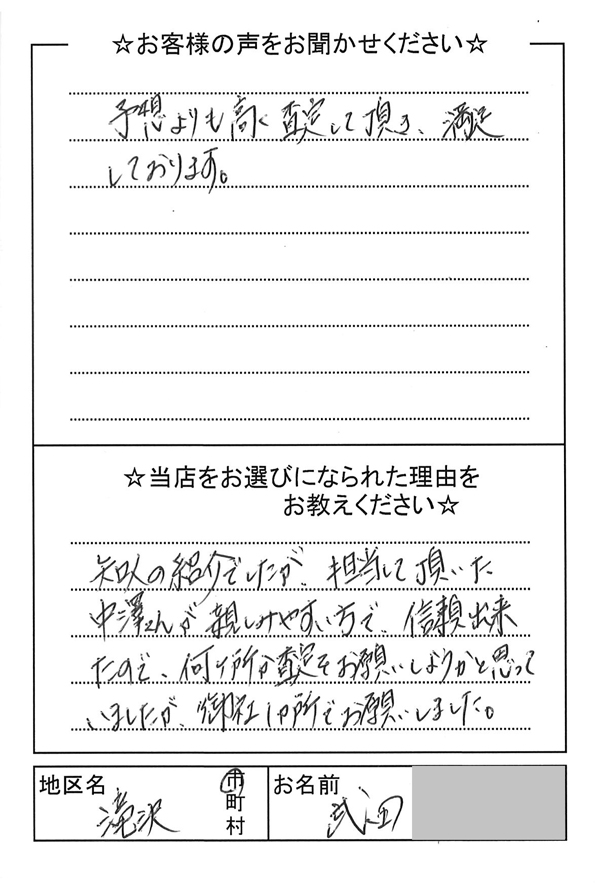 ☆お客様の声をお聞かせください☆
予想よりも高く査定して頂き、満足
しております。
☆当店をお選びになられた理由を
お教えください☆
知人の紹介でしたが、担当して頂いた
中澤さんが親しみやすい方で、信頼出来
たので、何ヶ所か査定をお願いしようかと思って
いましたが、御社1ヶ所でお願いしました。
地区名
滝沢
市
町
村
お名前
武田